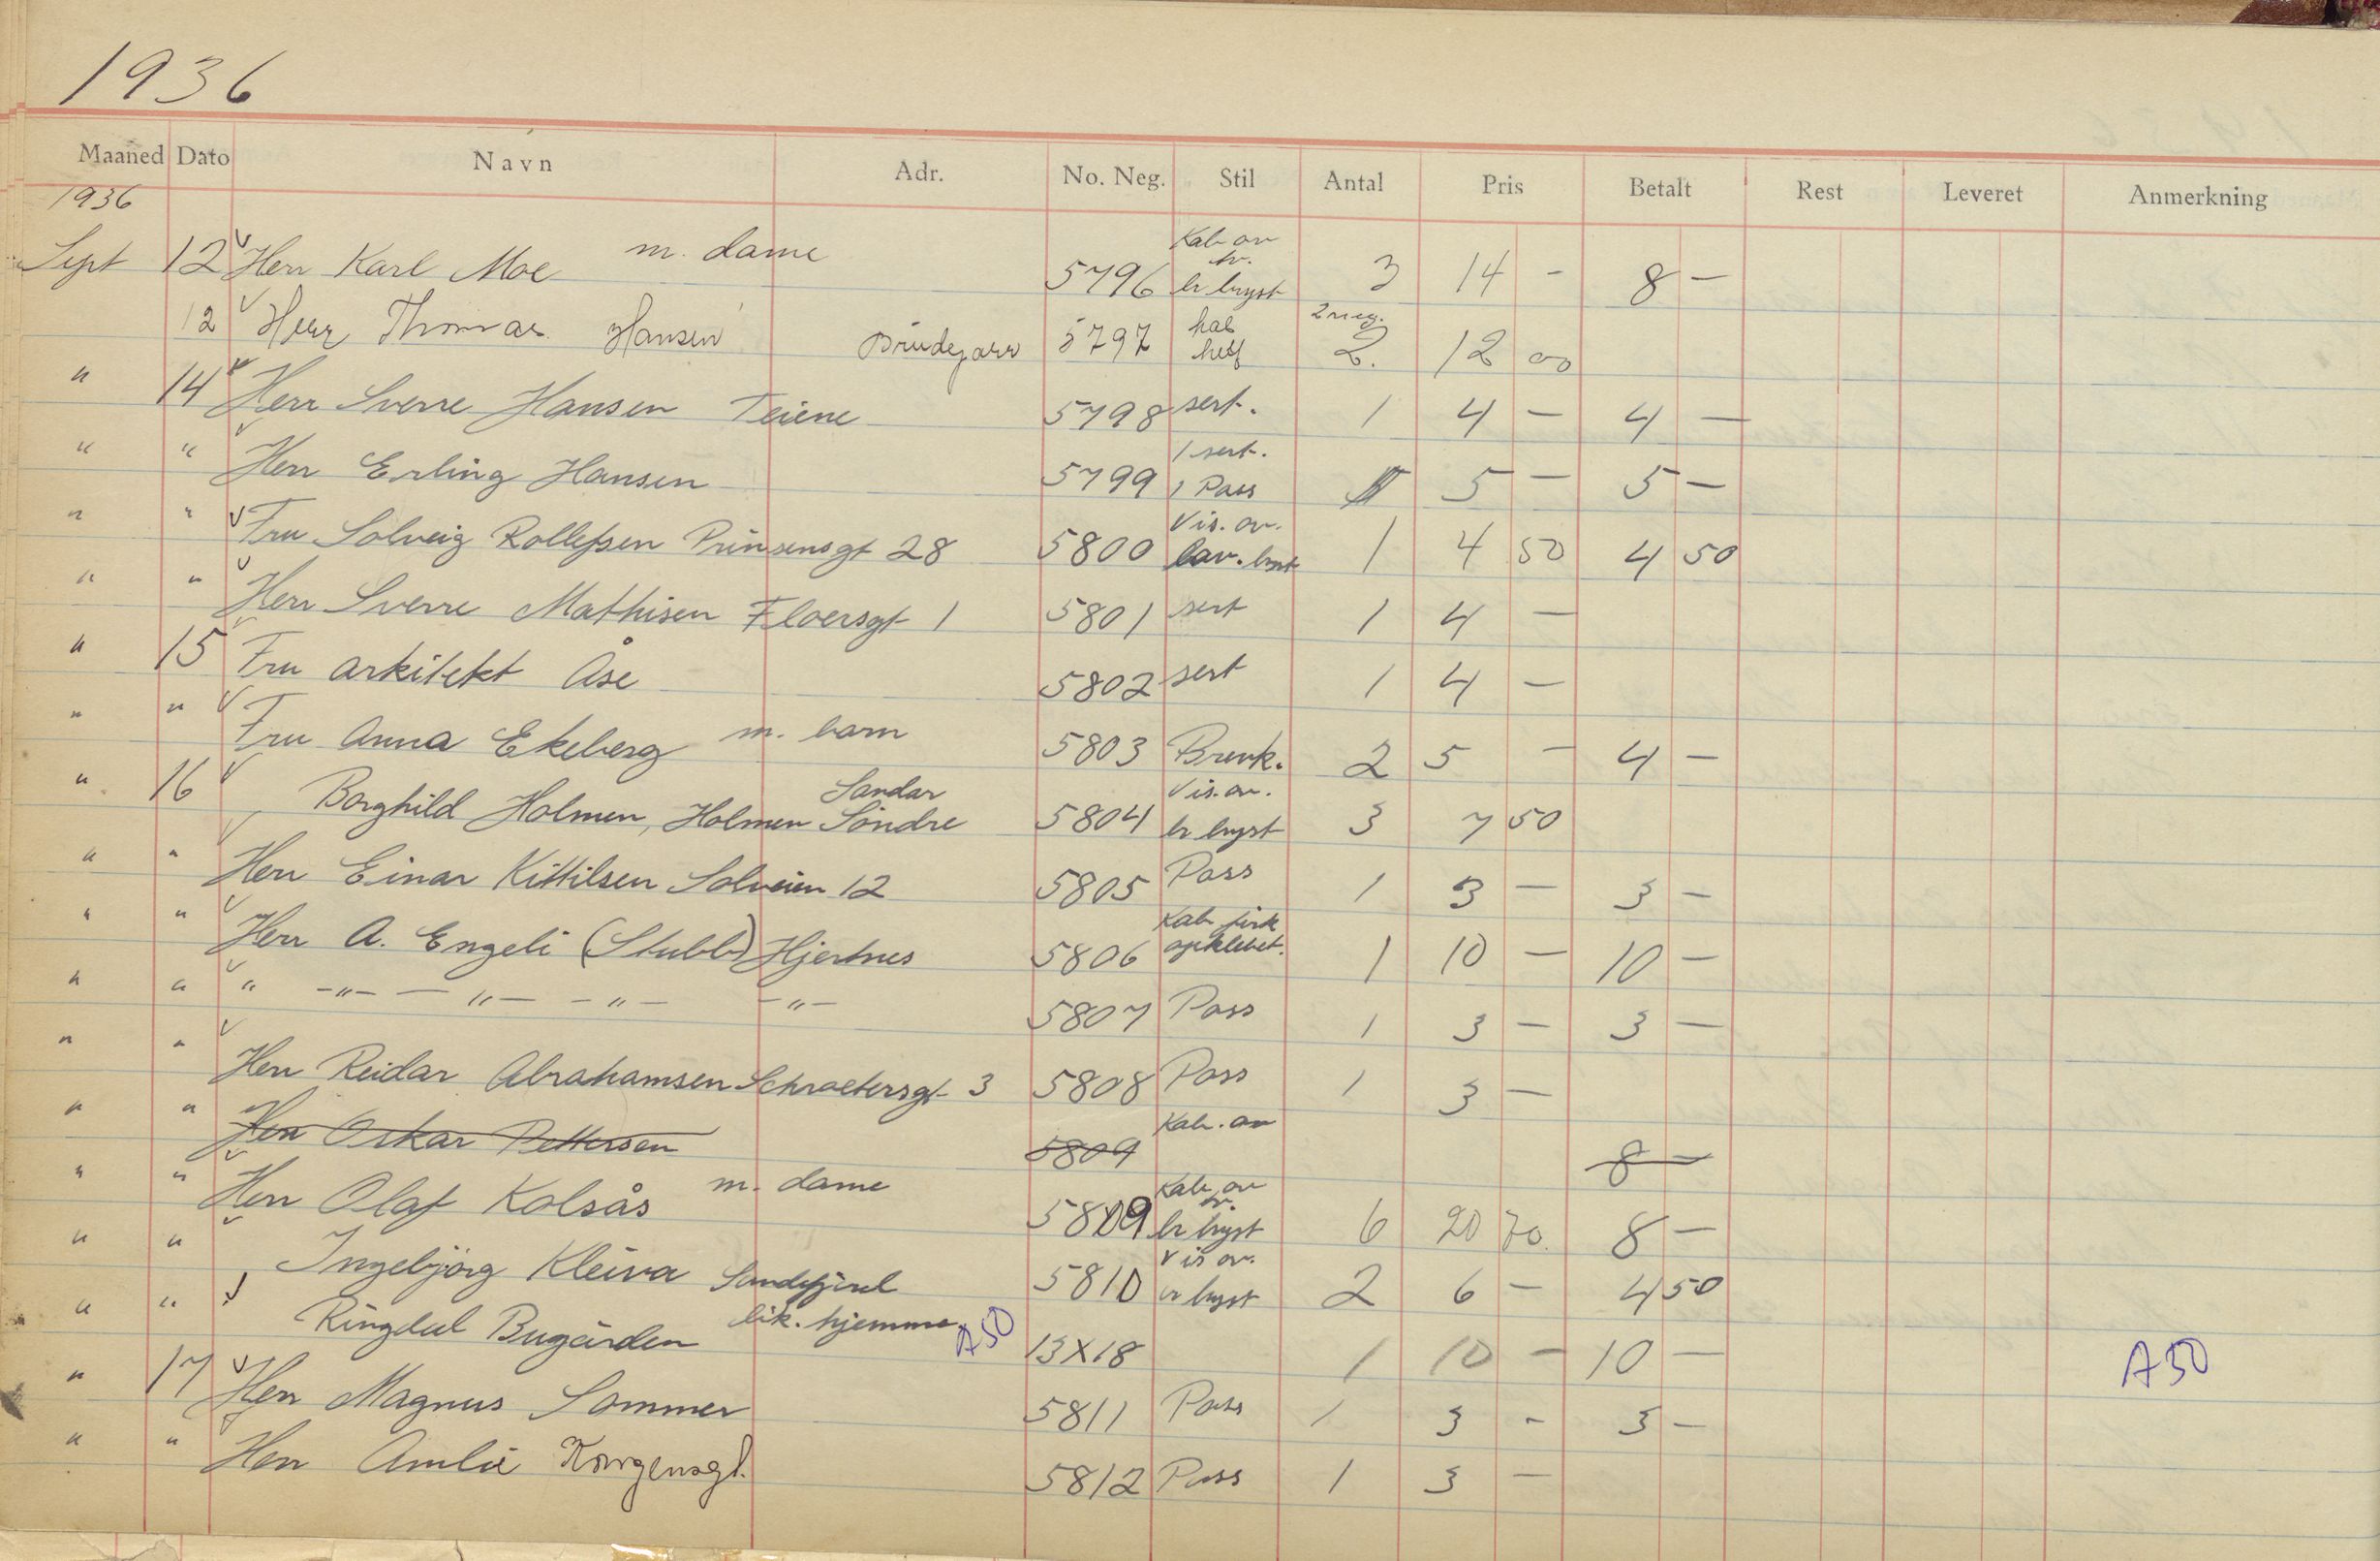 1936
Maaned Dato Navn Adr. No. Neg. Stil Antal Pris Betalt Rest Leveret Anmerkning
1936
Sept 12 Herr Karl Moe m. dame 5796 Kab. av br bryst 3 14 - 8 -
12 Herr Thomas Hansen Brudepar 5797 kab helf 2 neg. 2. 12 00
" 14 Herr Sverre Hansen Teiene 5798 sert. 1 4 - 4 -
" " Herr Erling Hansen 5799 1 sert. 1 Pass 5 - 5 -
" " Fru Solveig Rollefsen Prinsensgt 28 5800 Vis. av. 1 4 50 4 50
" " Herr Sverre Mathisen Floersgt 1 5801 sert 1 4 -
" 15 Fru arkitekt Åse 5802 sert 1 4 -
" " Fru Anna Ekeberg m. barn 5803 Brevk. 2 5 - 4 -
" 16 Borghild Holmen, Holmen Söndre Sandar 5804 Vis. av. br bryst 3 7 50
" " Herr Einar Kittilsen Solveien 12 5805 Pass 1 3 - 3 -
" " Herr A. Engeli (Stubb) Hjertnes 5806 Kab firk opklebet. 1 10 - 10 -
" " " -"- -"- -"- -"- 5807 Pass 1 3 - 3 -
" " Herr Reidar Abrahamsen Schroetersgt 3 5808 Pass 1 3 -
" " Herr Oskar Pettersen 5809 Kab. av 8 -
" " Herr Olaf Kolsås m. dame 5809 Kab. av br bryst 6 20 70 8 -
" " Ingebjörg Kleiva Sandefjord 5810 Vis av. br bryst 2 6 - 4 50
" " Ringdal Bugården lik. hjemme A50 13X18 1 10 - 10 - A50
" 17 Herr Magnus Sommer 5811 Pass 1 3 - 3 -
" " Herr Amlie Kongensgt. 5812 Pass 1 3 -